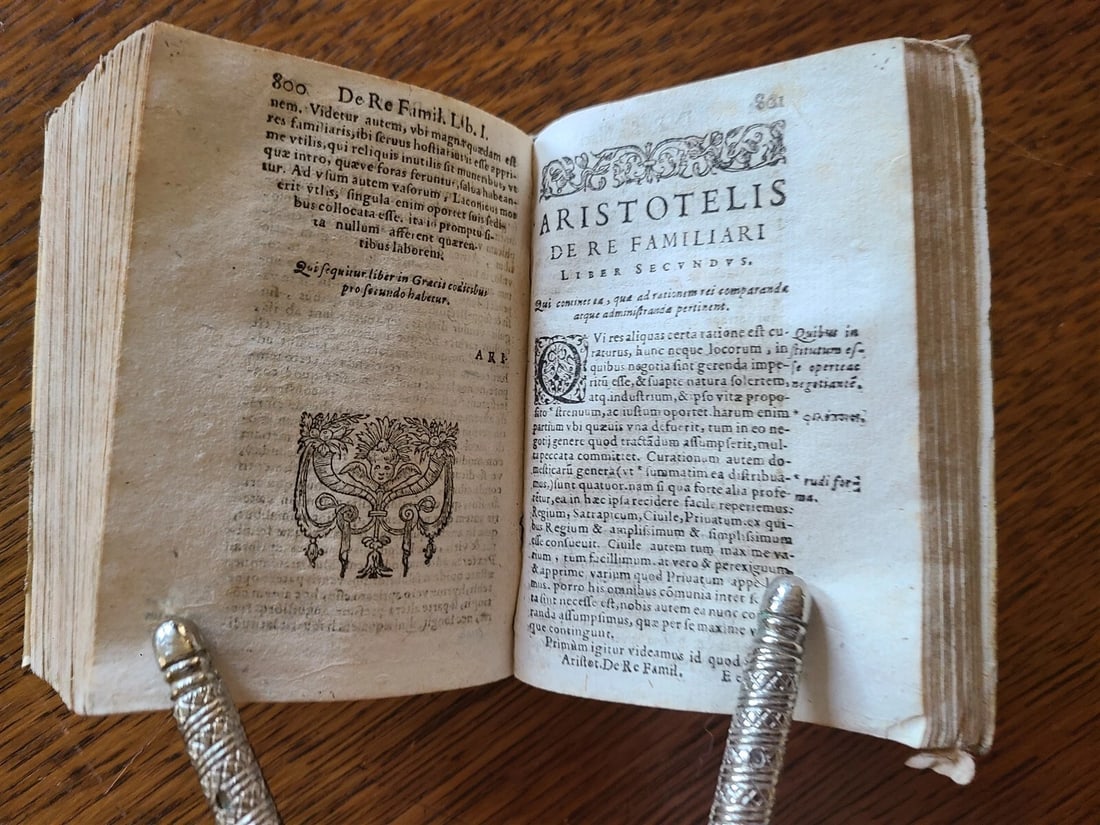 800 De Re Famil. Lib. I.
nem. Videtur autem, vbi magnæ quædam est
res familiaris, ibi seruus hostiarius esse appri-
me vtilis, qui reliquis inutilis sit muneribus, vt
quæ intro, quæve foras feruntur, salua habean-
tur. Ad vsum autem vasorum, Laconicus mos
erit vtlis, singula enim oportet suis sedi-
bus collocata esse. ita in promptu si-
ta nullum afferent quæren-
tibus laborem.
Qui sequitur liber in Græcis codicibus
pro secundo habetur.
ARI-
801
ARISTOTELIS
DE RE FAMILIARI
LIBER SECVNDVS.
Qui continet ea, quæ ad rationem rei comparandæ
atque administrandæ pertinent.
QVi res aliquas certa ratione est cu-
raturus, hunc neque locorum, in
quibus negotia sint gerenda impe-
ritũ esse, & suapte natura solertem,
atq. industrium, & ipso vitæ propo-
sito * strenuum, ac iustum oportet. harum enim
partium vbi quæuis vna defuerit, tum in eo ne-
gotij genere quod tractãdum assumpserit, mul-
ta peccata committet. Curationum autem do-
mesticarũ genera (vt * summatim ea distribua-
mus,) sunt quatuor. nam si qua forte alia profe-
rẽtur, ea in hæc ipsa recidere facile reperiemus:
Regium, Satrapicum, Ciuile, Priuatum. ex qui-
bus Regium & amplissimum & simplissimum
esse consueuit. Ciuile autem tum maxime va-
rium, tum facillimum. at vero & perexiguum,
& apprime varium quod Priuatum
mus. porro his omnibus cõmunia inter
ta sint necesse est, nobis autem ea nunc
randa assumpsimus, quæ per se maxime
que contingunt.
Primum igitur videamus id quod
Aristot. De Re Famil. E
Quibus in
stitutum es-
se oporteat
negotiantẽ.
* rudi for-
ma.